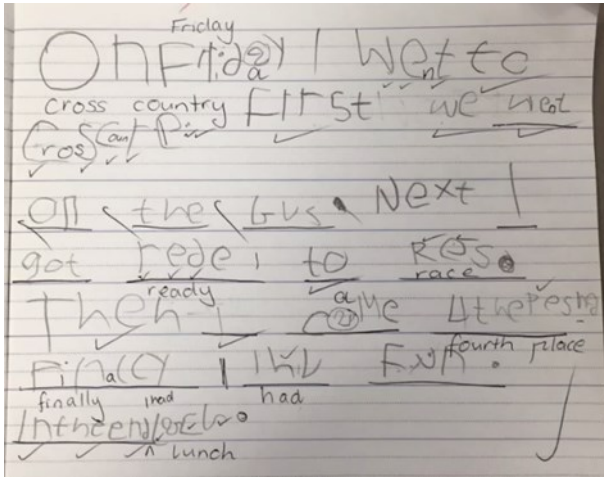 Friday
On Friday I Went to
cross country First we went
Cros Cunt
On the bus. Next I
got redei to Res.
ready race
Then I came 4the
fourth place
Finally I had Fun.
finally had had
In the end
lunch